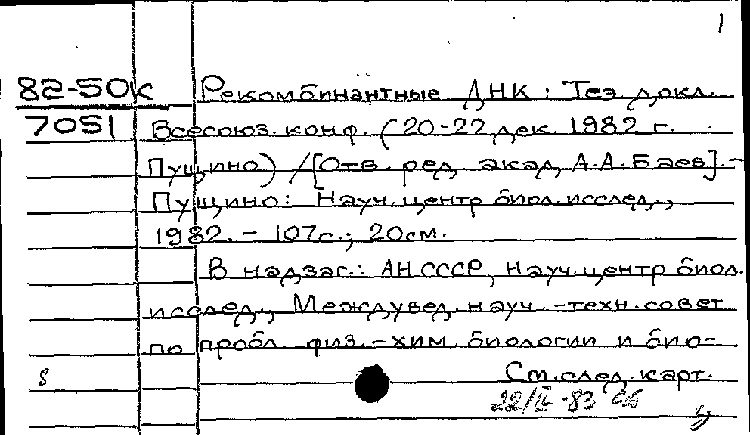 1
82-50к Рекомбинантные ДНК: Тез. докл.
7051 Всесоюз. конф. (20-22 дек. 1982 г.
Пущино) /[Отв. ред. акад. А.А. Баев]. -
Пущино: Науч. центр биол. исслед.,
1982. - 107с.; 20см.
В надзаг.: АН СССР, Науч. центр биол.
исслед., Междувед. науч.-техн. совет
по пробл. физ.-хим. биологии и био-
8 См. след. карт.
22/II-83